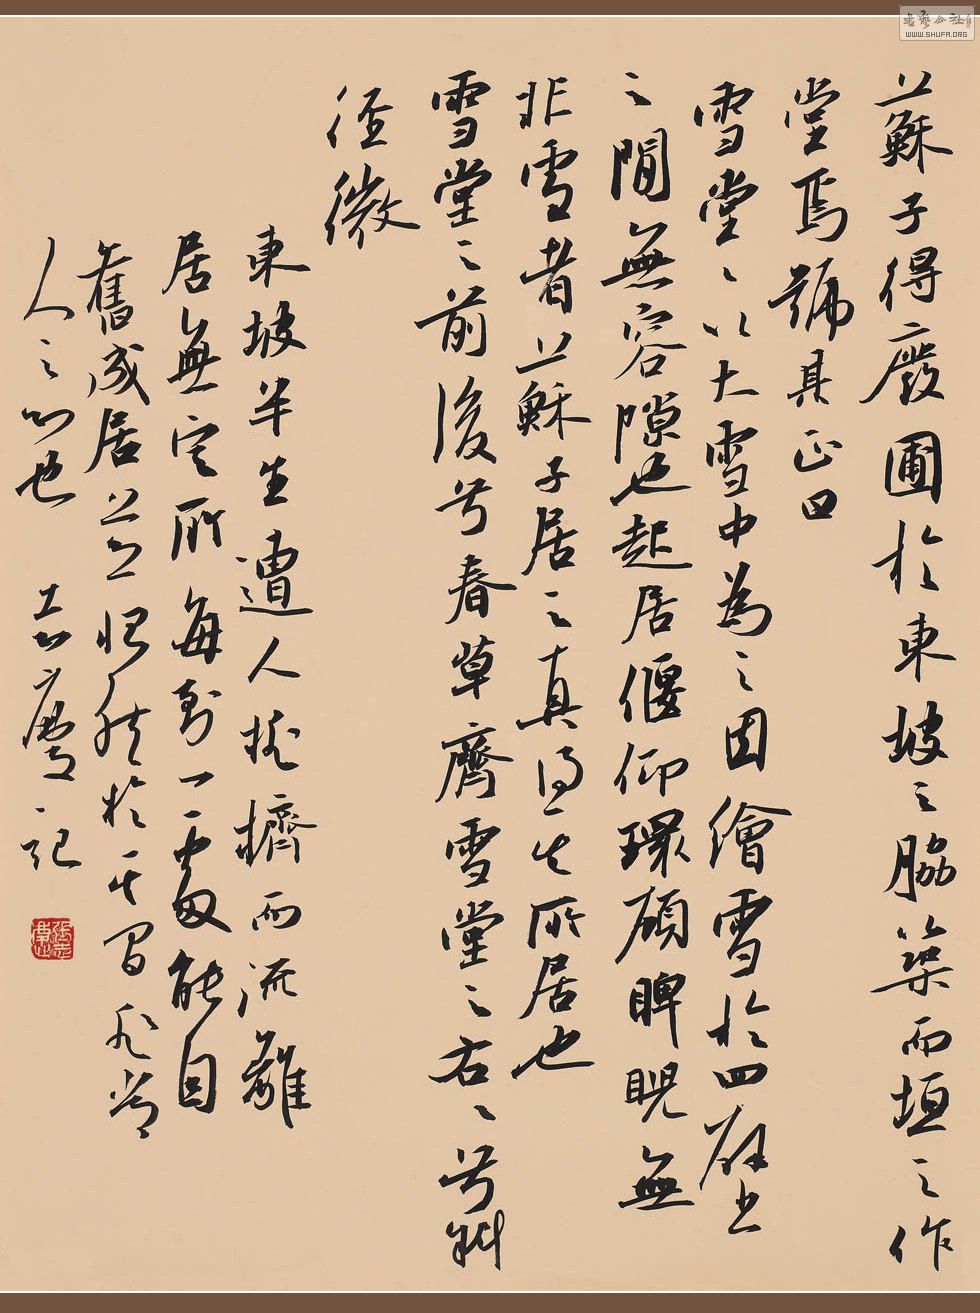 蘇子得廢圃於東坡之脇築而垣之作
堂焉號其正曰
雪堂之以大雪中為之因繪雪於四壁
之間無容隙也起居偃仰環顧睥睨無
非雪者蘇子居之真得其所居也
雪堂之前後兮春草齊雪堂之右之兮斜
徑微
東坡半生遭人排擠而流離
居無定所每到一處能自
舊成居 於 非常
人之心也 志慶記
WWW.SHUFA.ORG